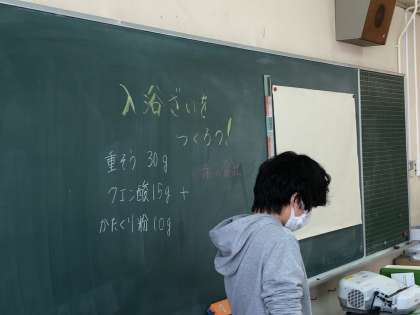 入浴ざいを
つくろう!
重そう 30g
クエン酸 15g +
かたくり粉 10g